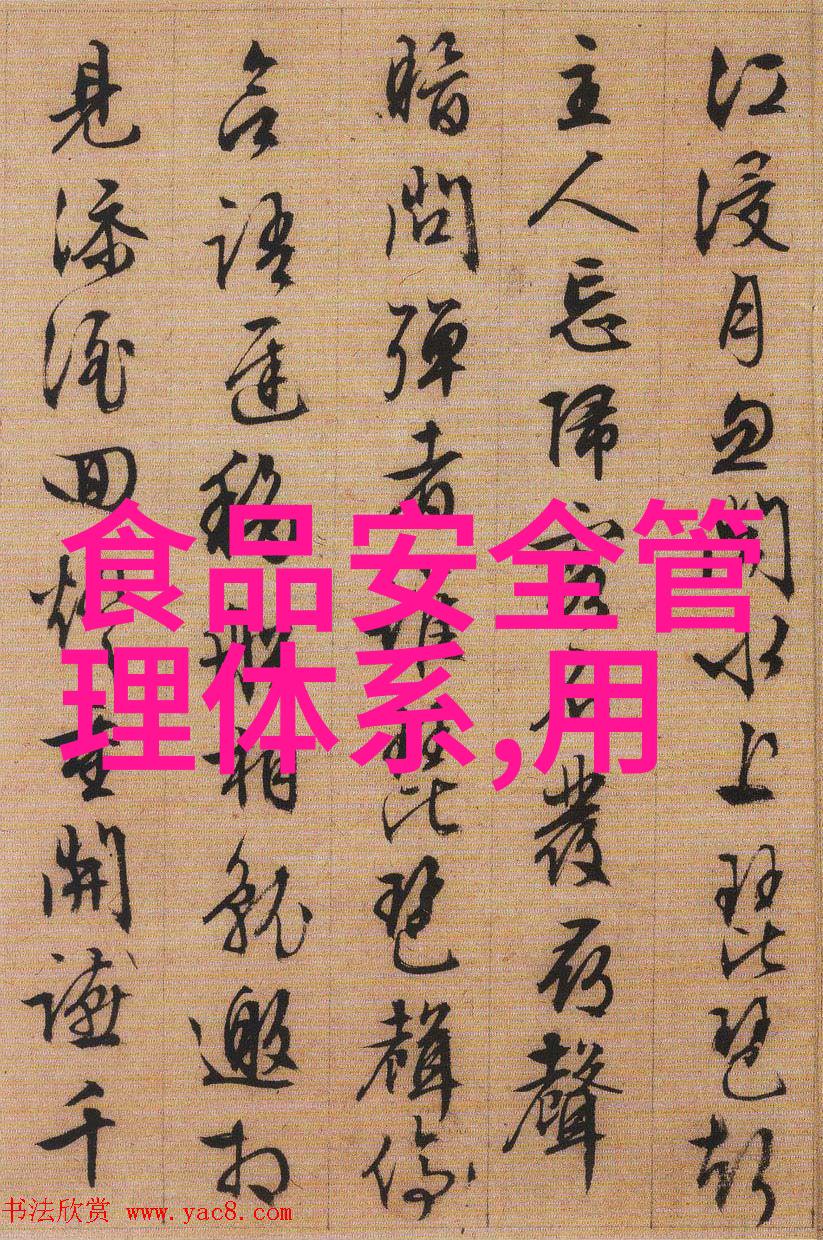 江浸月忽聞水上琵琶
主人忘歸客不發尋聲
暗問彈者誰琵琶聲停
語遲移船相就邀相
見添酒回燈重開讌千
食品安全管
理体系,用
书法欣赏 www.yac8.com